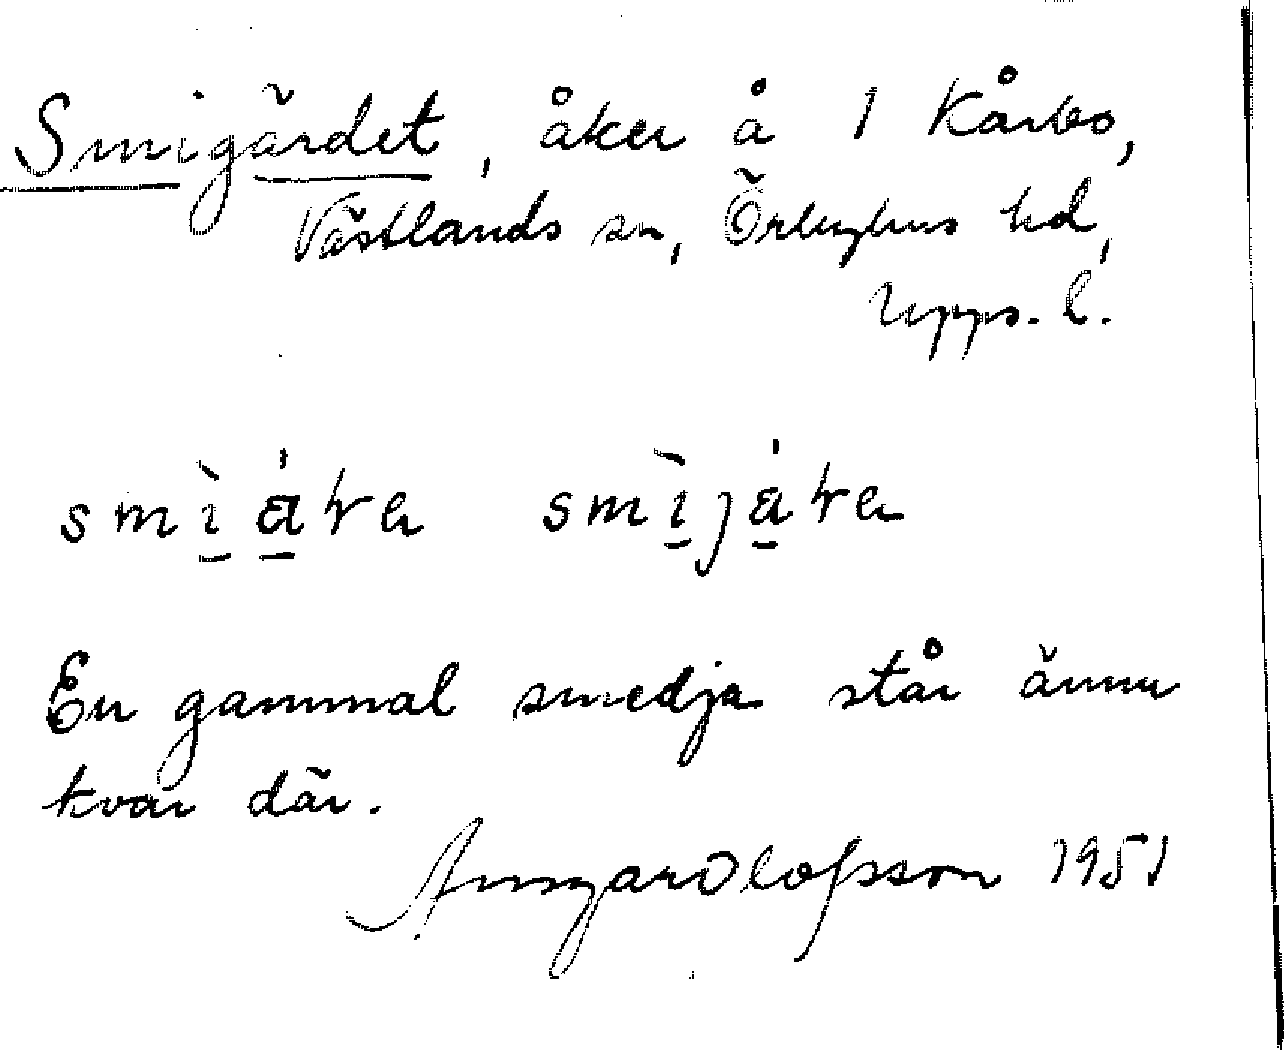 Smigärdet, åker å 1 Kårbo,
Västlands sn, Örbyhus hd,
Upps. l.
smìá̈ra smìjá̈ra
En gammal smedja står ännu
kvar där.
Ansgar Olofsson 1951